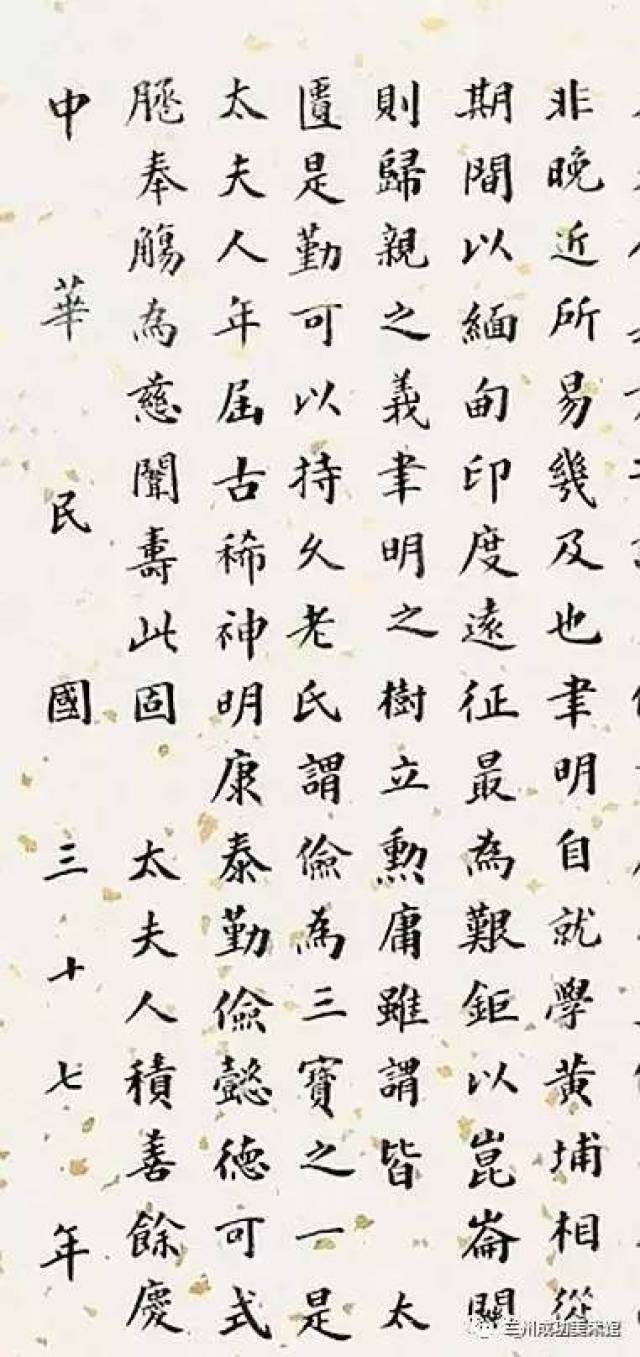 非晚近所易幾及也聿明自就學黃埔相從
期間以緬甸印度遠征最為艱鉅以崑崙關
則歸親之義聿明之樹立勲庸雖謂皆 太
匱是勤可以持久老氏謂儉為三寶之一是
太夫人年屆古稀神明康泰勤儉懿德可式
奉觴為慈闈壽此固 太夫人積善餘慶
中華民國三十七年
兰州成功美术馆